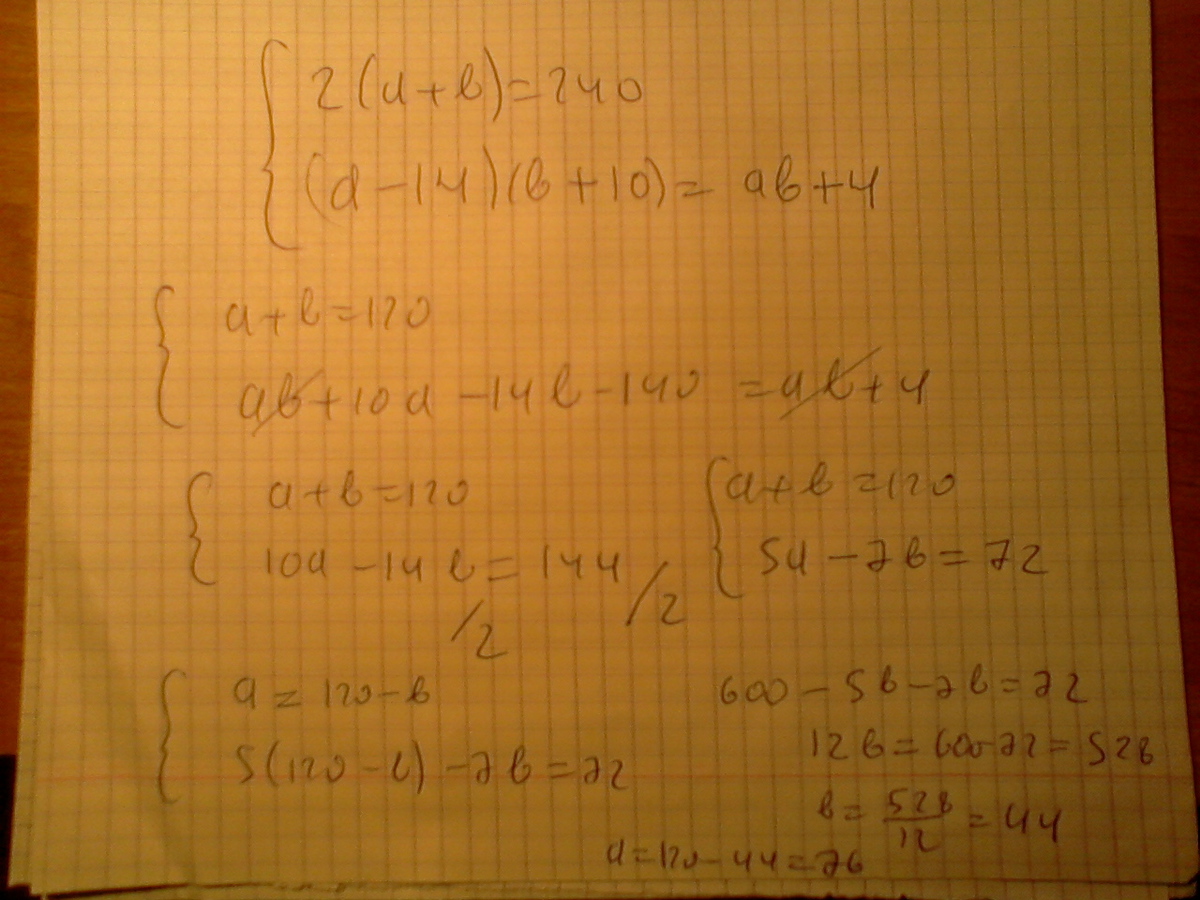 2(a+b)=240
(a-14)(b+10)= ab+4
a+b=120
ab+10a-14b-140=ab+4
a+b=120
10a-14b=144
/2 /2
a+b=120
5a-7b=72
a=120-b
5(120-b)-7b=72
600-5b-7b=72
12b=600-72=528
b=528/12=44
a=120-44=76